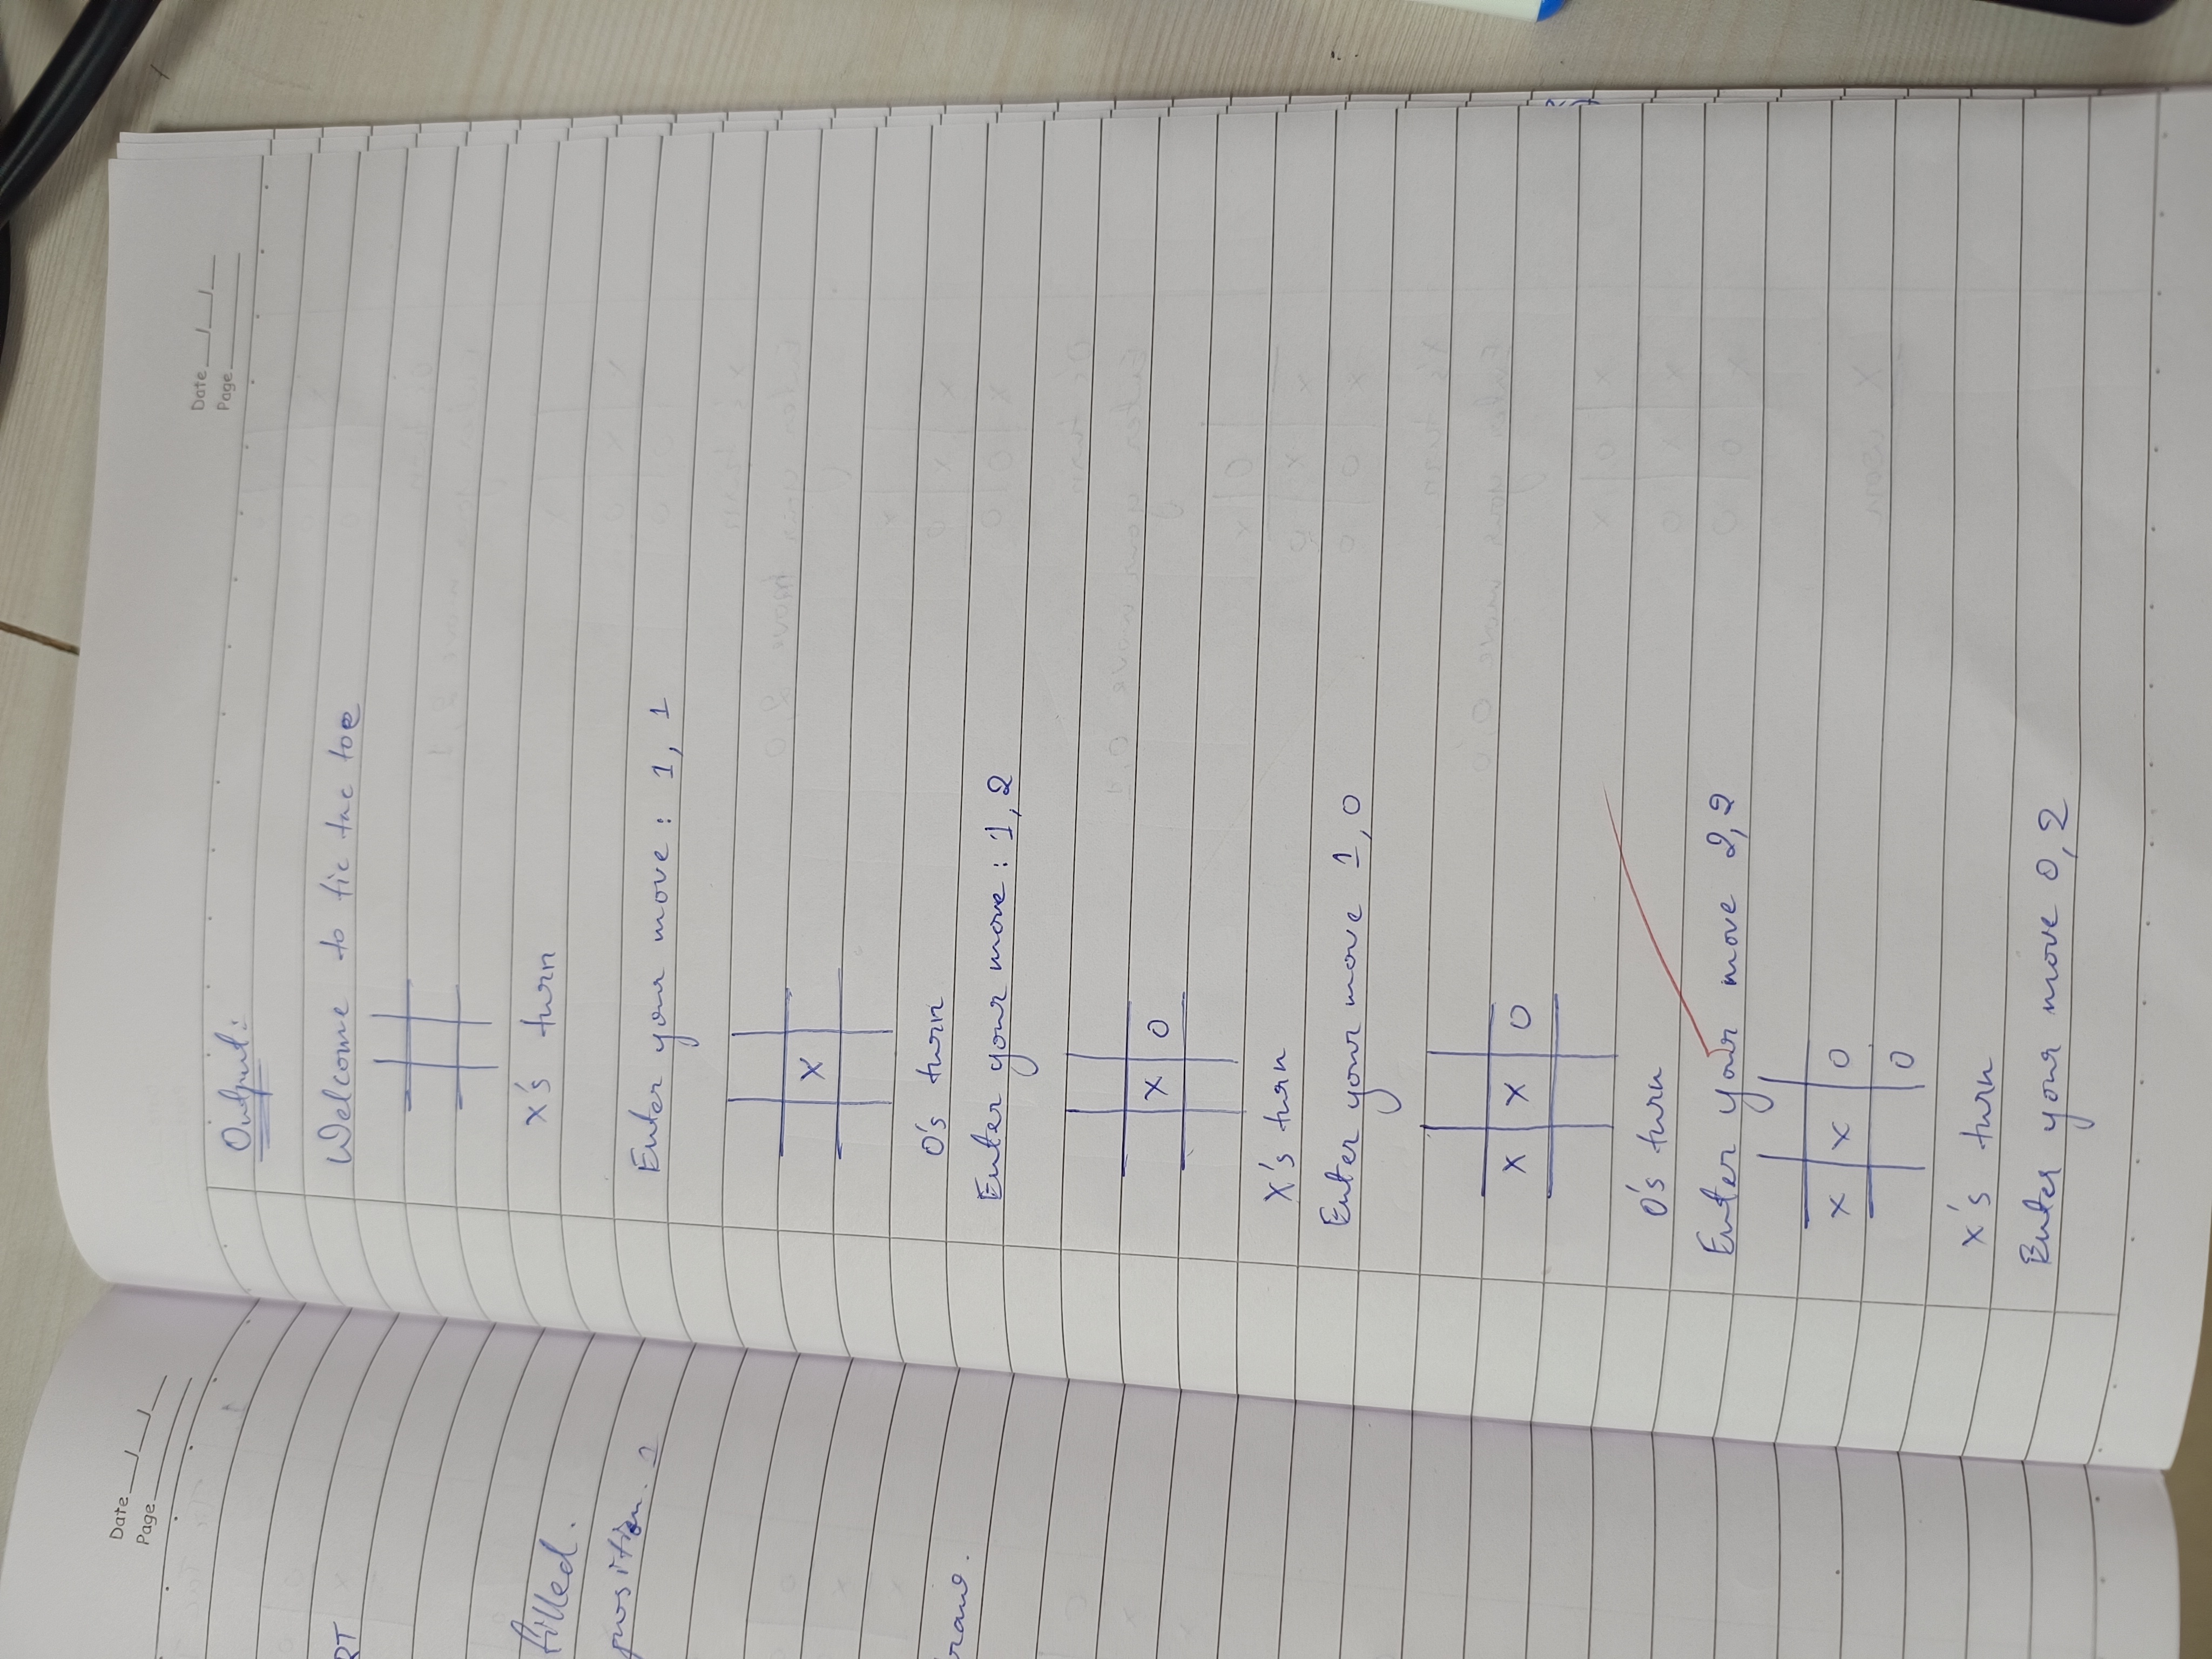 Date
Page
RT
filled.
position. 1
Date
Page
Output:
Welcome to tic tac toe
X's turn
Enter your move : 1, 1
X
O's turn
Enter your move : 1, 2
X O
X's turn
Enter your move 1, 0
X X O
O's turn
Enter your move 2,2
X X O
O
X's turn
Enter your move 0, 2